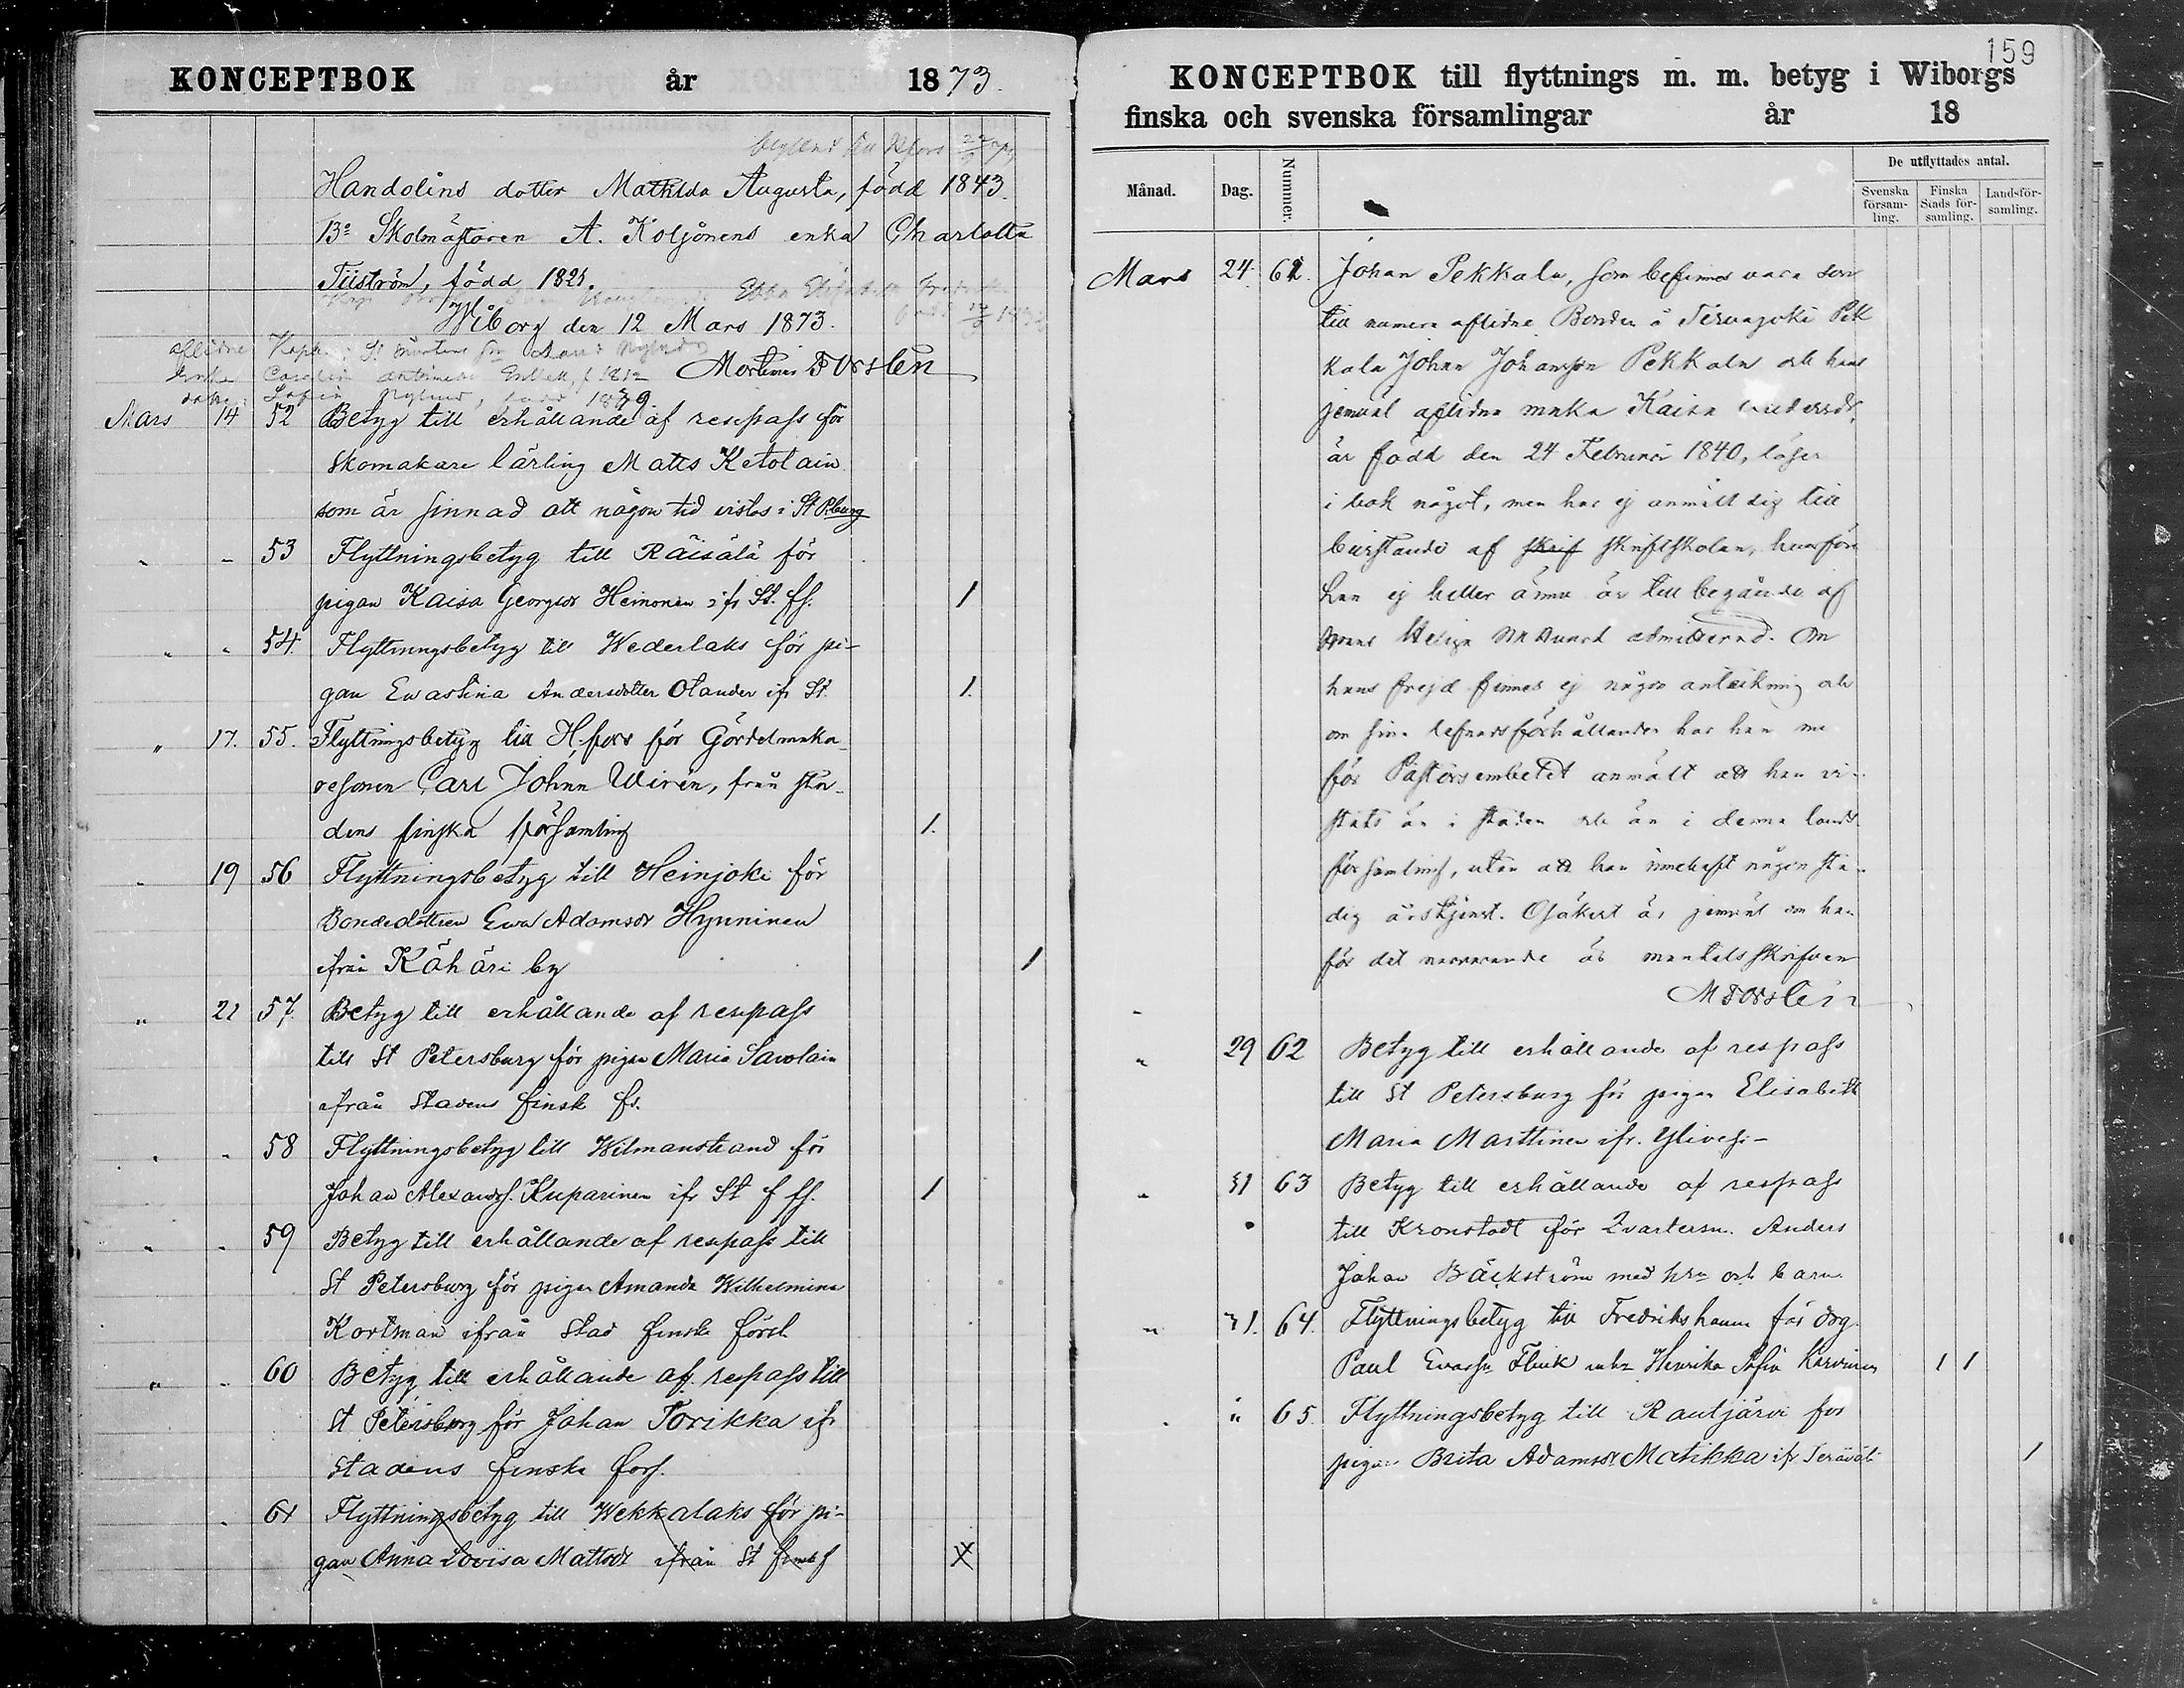 KONCEPTBOK år 1873.
Handolins dotter Mathilda Augusta, född 1843.
13o Skolmästaren A. Koljonens enka Charlotta
Tiiström, född 1821.
Wiborg den 12 Mars 1873.
aflidne Kapl. i St Mårtens
enka
dotter Sofia Nylund, född 1839
Mortimer Forslén
Mars 14 52 Betyg till erhållande af respass för
Skomakare lärling Matts Ketolain
som är sinnad att någon tid vistas i St P.burg
" " 53 Flyttningsbetyg till Räisälä för
pigan Kaisa Georgsdr Heinonen ifr St. ff. 1
" " 54. Flyttningsbetyg till Wederlaks för pi-
gan Ewastina Andersdotter Olander ifr St. 1.
" 17. 55. Flyttningsbetyg till H.fors för Gördelmaka-
resonen Carl Johan Wirén, från sta-
dens finska församling 1.
" 19 56 Flyttningsbetyg till Heinjoki för
Bondedottren Ewa Adamsdr Hynninen
ifrån Kähäri by 1
" 21 57. Betyg till erhållande af respass
till St Petersburg för pigan Maria Savolain
ifrån Stadens finsk fs.
" " 58 Flyttningsbetyg till Wilmanstrand för
Johan Alexandss. Kuparinen ifr St f fs. 1
" " 59 Betyg till erhållande af respass till
St Petersburg för pigan Amanda Wilhelmina
Kortman ifrån Stad finska förs.
" " 60 Betyg till erhållande af respass till
St Petersburg för Johan Torikka ifr
Stadens finska förs.
" 61 Flyttningsbetyg till Wekkalaks för pi-
gan Anna Lovisa Mattsdr ifrån St finsk f X
159
KONCEPTBOK till flyttnings m. m. betyg i Wiborgs
finska och svenska församlingar år 18
Månad. Dag. Nummer. De utflyttades antal.
Svenska församling. Finska Stads församling. Landsförsamling.
Mars 24. 61. Johan Pekkala, som befinnes vara son
till numera aflidne Bonden å Tervajoki Pek
kala Johan Johansson Pekkala och hans
jemväl aflidna maka Kaisa Andersdr,
är född den 24 Februari 1840, läser
i bok något, men har ej anmält sig till
bevistande af skrif skriftskolan, hvarföre
han ej heller ännu är till begående af
Herrans Heliga Nattvard admitterad. Om
hans frejd finnes ej någon anteckning och
om sina lefnadsförhållanden har han in-
för Pastorsembetet anmält att han vi-
stats än i staden och än i denna lands
församling, utan att han innehaft någon stä-
dig årstjenst. Osäkert är jemväl om han
för det närvarande är mantalsskrifven
M Forslén
" 29 62 Betyg till erhållande af respass
till St Petersburg för pigan Elisabeth
Maria Marttinen ifr. Ylivesi-
" 31 63 Betyg till erhållande af respass
till Kronstadt för Qvarterm. Anders
Johan Bäckström med hru och barn
" 31. 64. Flyttningsbetyg till Fredrikshamn för drg.
Paul Evasson Flink Henrika Sofia Karvinen 1 1
" " 65. Flyttningsbetyg till Rautjärvi för
pigan Brita Adamsdr Matikka ifr 1